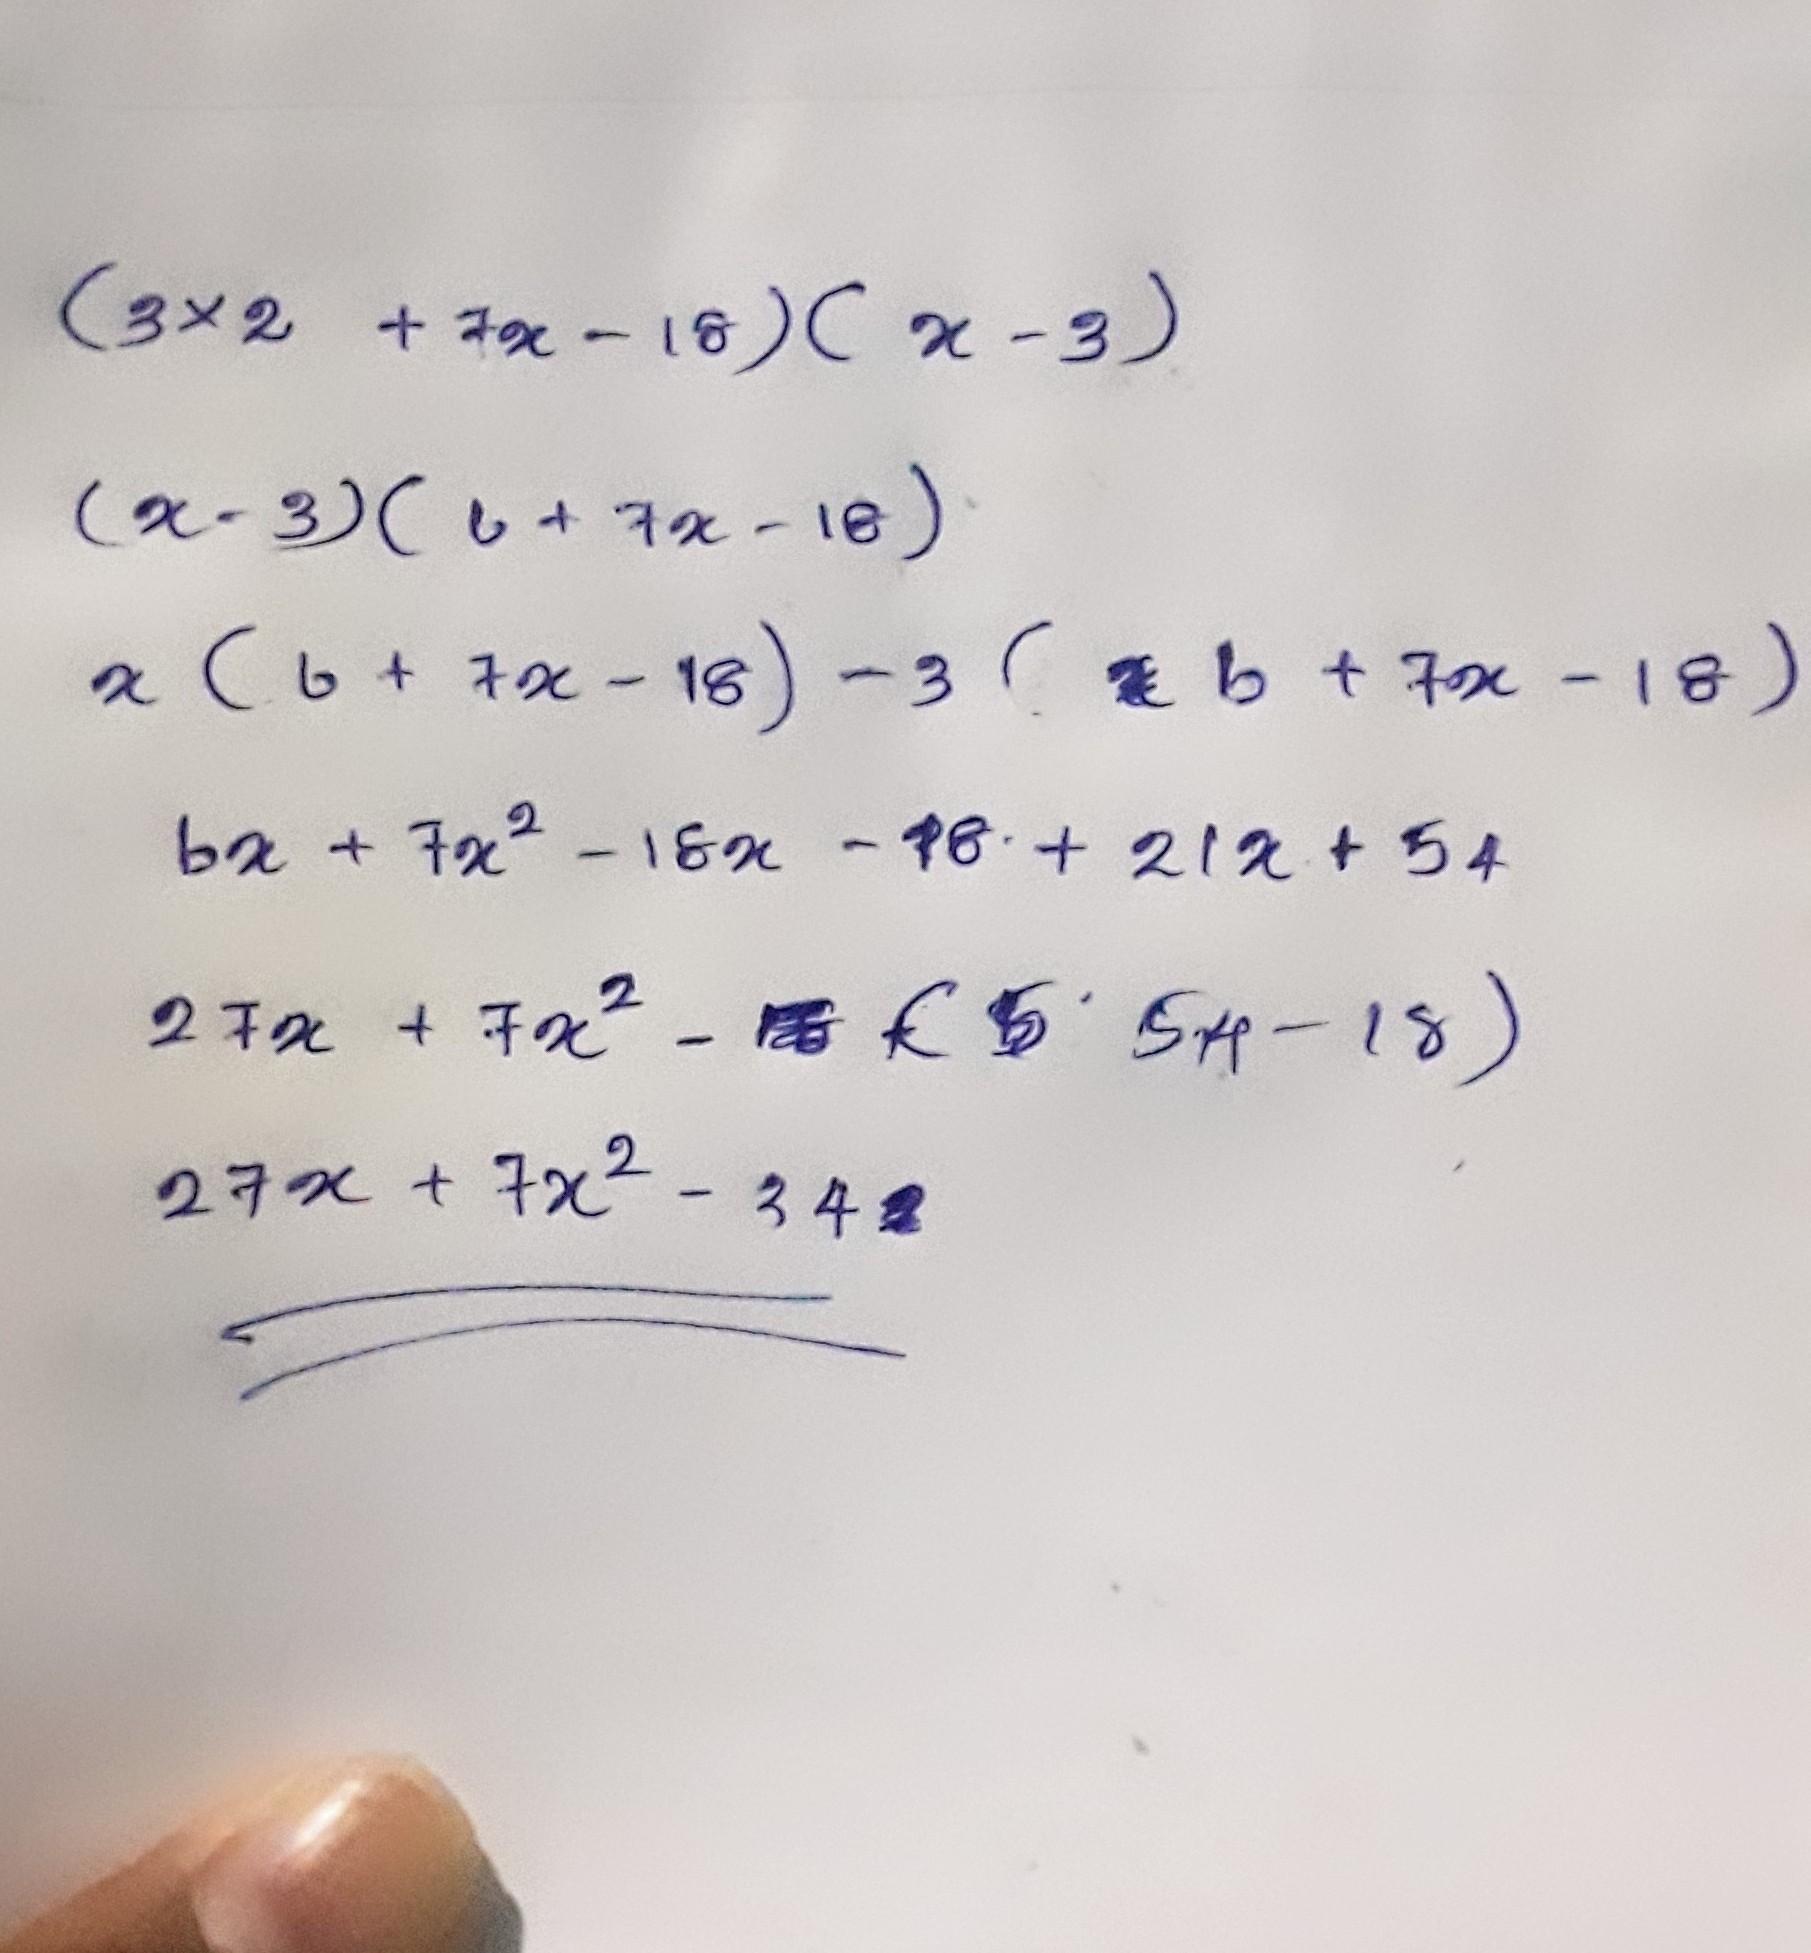 (3×2 + 7x - 18)(x - 3)
(x - 3)(6 + 7x - 18)
x(6 + 7x - 18) - 3(6 + 7x - 18)
6x + 7x² - 18x - 18 + 21x + 54
27x + 7x² - (54 - 18)
27x + 7x² - 34